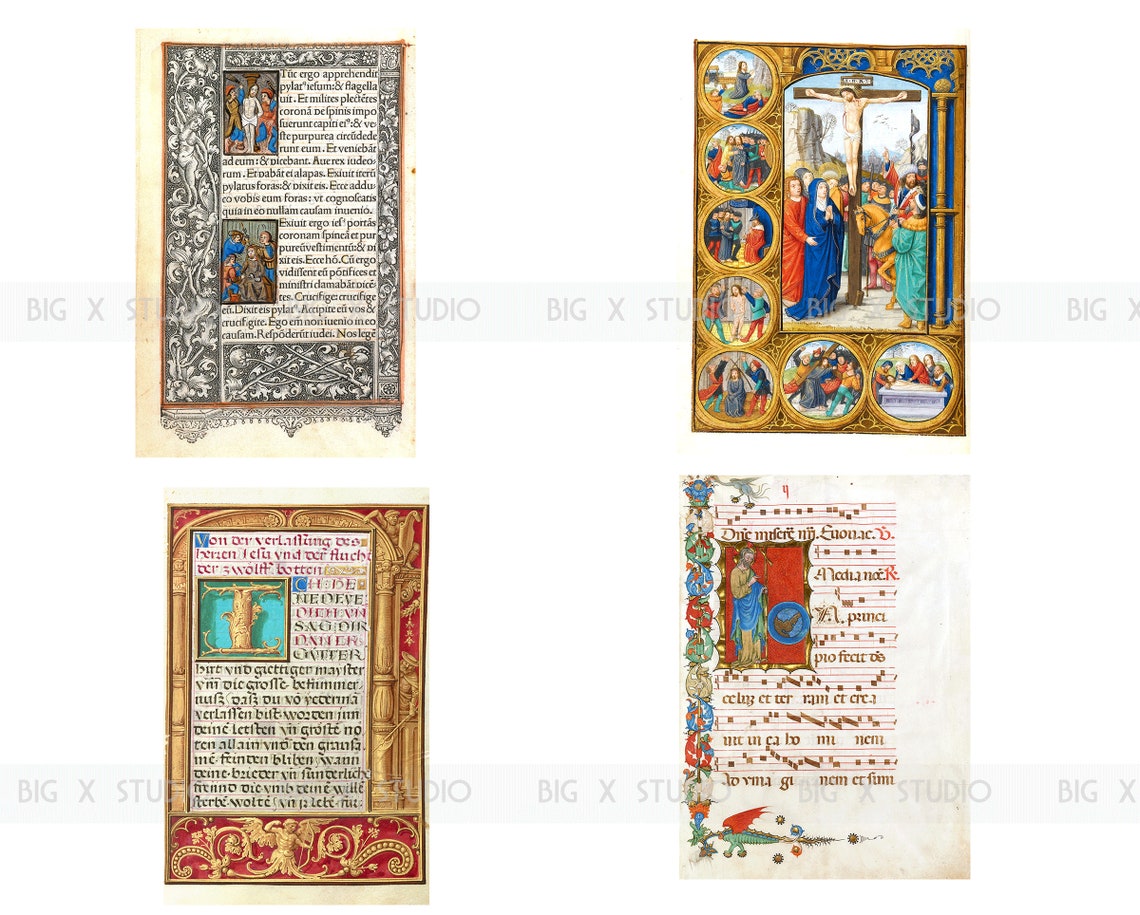 Tūc ergo apprehendit
pylat⁹ iesum: & flagella
uit. Et milites plectētes
coronā de spinis impo
suerunt capiti ei⁹: & ve-
ste purpurea circūdede
runt eum. Et veniebāt
ad eum: & dicebant. Aue rex iudeo-
rum. Et dabāt ei alapas. Exiuit iterū
pylatus foras: & dixit eis. Ecce addu-
co vobis eum foras: vt cognoscatis
quia in eo nullam causam inuenio.
Exiuit ergo ies⁹ portās
coronam spineā et pur
pureū vestimentū: & di
xit eis. Ecce hō. Cū ergo
vidissent eū pōtifices et
ministri clamabāt dicē-
tes. Crucifige: crucifige
eū. Dixit eis pylat⁹. Accipite eū vos &
crucifigite. Ego em̄ non iuenio in eo
causam. Respōderūt iudei. Nos legē
I·N·R·I
Von der verlassung des
herren Jesu vnd der flucht
der zwölff botten
ICH DE
NEDEVE
DICH VN
SAG DIR
DANCK
GVTTER
hirt vnd giettigen mayster
vm die grosse bekummer
nusz dasz du vō yederman
verlassen bist worden inn
deinē letsten vn̄ gröstē no
ten allain vnd den grausa
mē feinden bliben wann
deine brieder vn̄
die
sterbē woltē
ij
Dn̄e miserē Euouae. V̄.
R.
In princi
pio fecit ds
celuȝ et ter ram et crea
uit in ea ho mi nem
Ad yma gi nem et sim
BIG X STUDIO BIG X STUDIO BIG X
BIG X STUDIO BIG X STUDIO BIG X